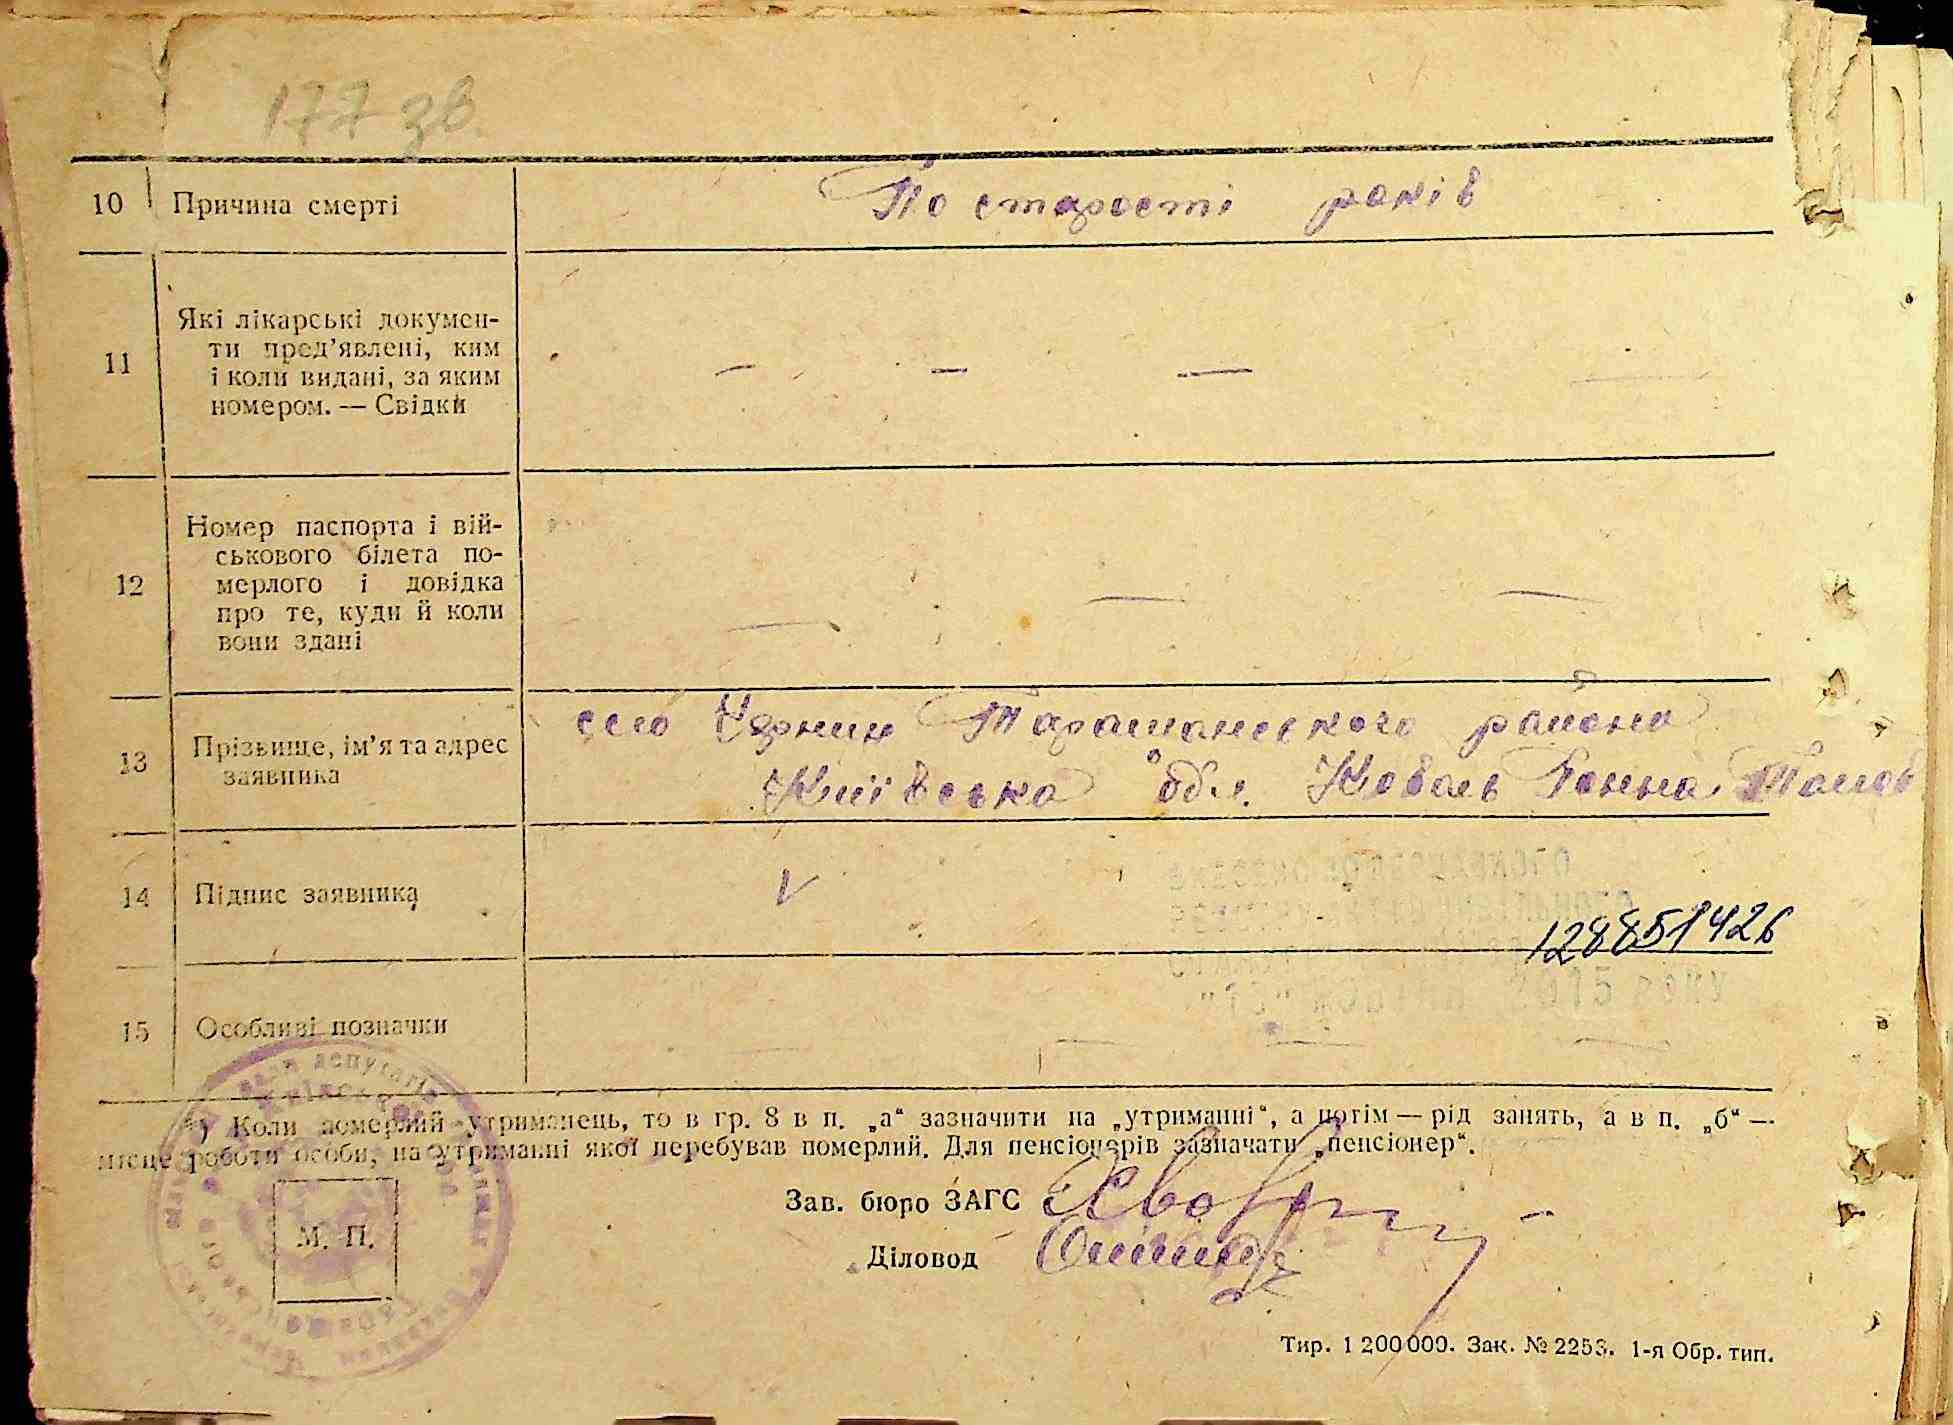 177 зв.
10 Причина смерті По старості років
11 Які лікарські докумен-
ти пред’явлені, ким
і коли видані, за яким
номером. — Свідки — — —
12 Номер паспорта і вій-
ськового білета по-
мерлого і довідка
про те, куди й коли
вони здані — — —
13 Прізвище, ім’я та адрес
заявника
село Чернин Таращанського района
Київська обл. Коваль Ганна
14 Підпис заявника V
128851426
15 Особливі позначки — — — —
*) Коли померлий утриманець, то в гр. 8 в п. „а“ зазначити на „утриманні“, а потім — рід занять, а в п. „б“ —
місце роботи особи, на утриманні якої перебував померлий. Для пенсіонерів зазначати „пенсіонер“.
Зав. бюро ЗАГС
М. П.
Діловод
Тир. 1 200 000. Зак. № 2253. 1-я Обр. тип.